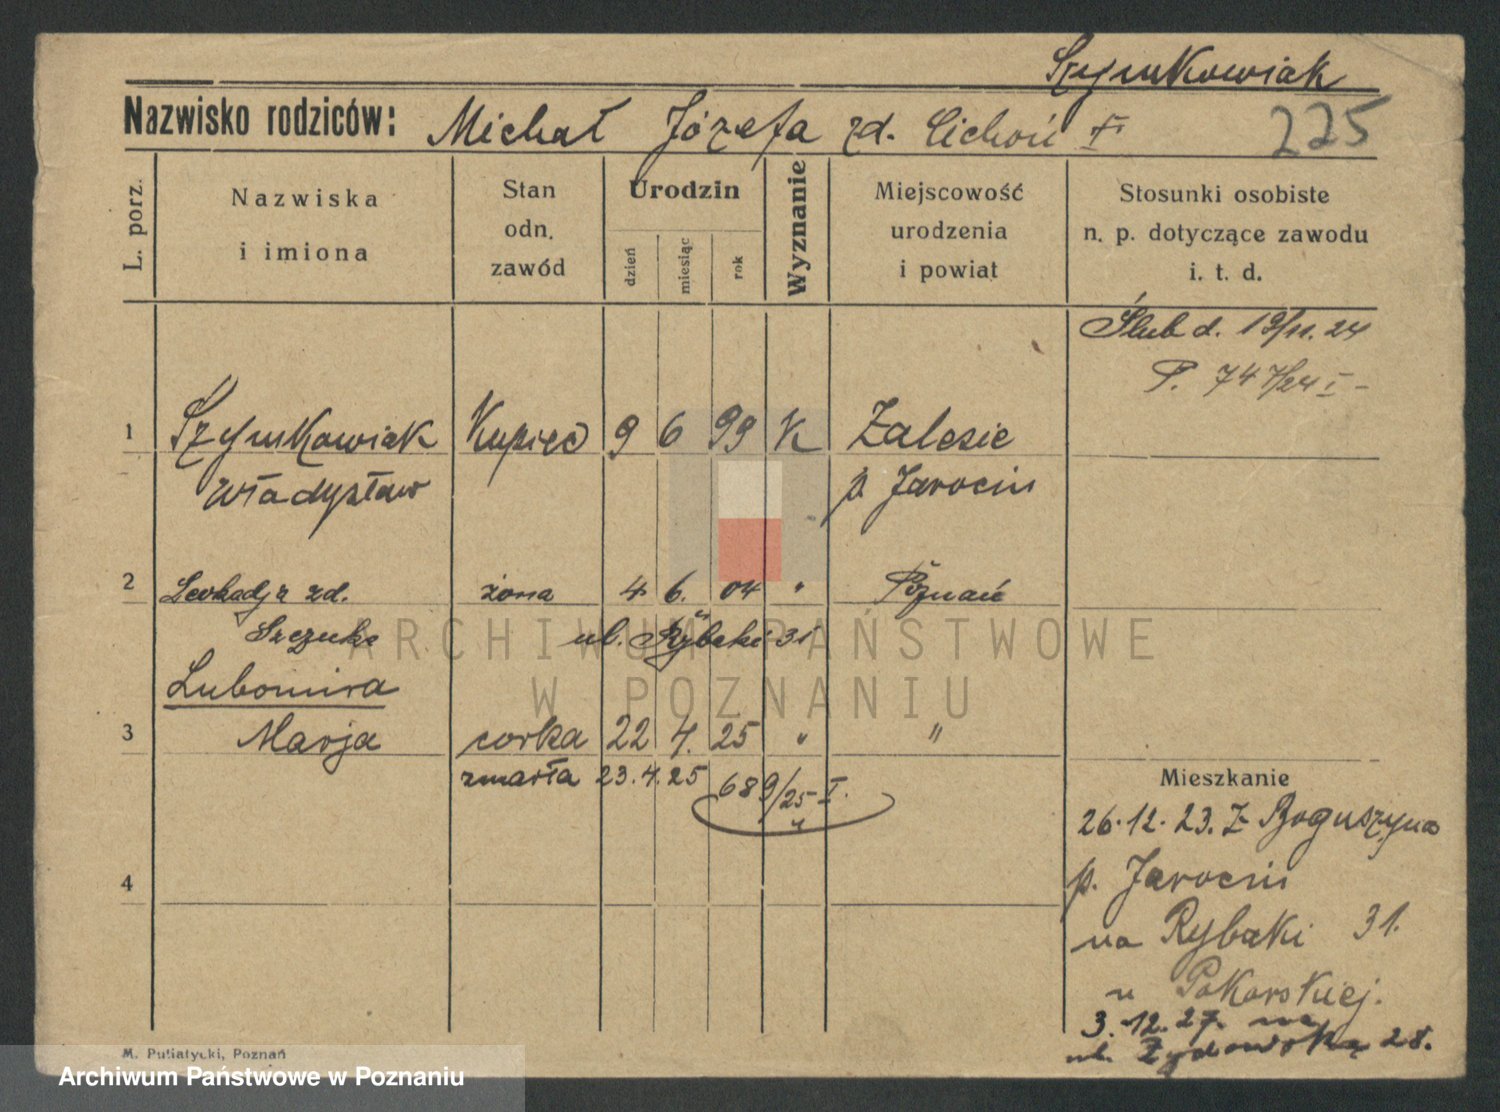 Szymkowiak
Nazwisko rodziców: Michał Józefa zd. Cichoń
225
L. porz.
Nazwiska
i imiona
Stan
odn.
zawód
Urodzin
dzień
miesiąc
rok
Wyznanie
Miejscowość
urodzenia
i powiat
Stosunki osobiste
n. p. dotyczące zawodu
i. t. d.
Ślub d. 19/11. 24
P. 747/24 I -
1 Szymkowiak Kupiec 9 6 99 K Zalesie
Władysław p Jarocin
2 Leokadja zd. żona 4. 6. 04 " Poznań
Szczuka ul. Rybaki 31
Lubomira
3 Marja corka 22 4. 25 " "
zmarła 23.4.25 689/25 I.
4
Mieszkanie
26.12.23. Z Boguszyna
p. Jarocin
na Rybaki 31.
u Pokorskiej.
3.12.27. na
ul. Żydowską 28.
M. Putiatycki, Poznań
ARCHIWUM PAŃSTWOWE
W POZNANIU
Archiwum Państwowe w Poznaniu